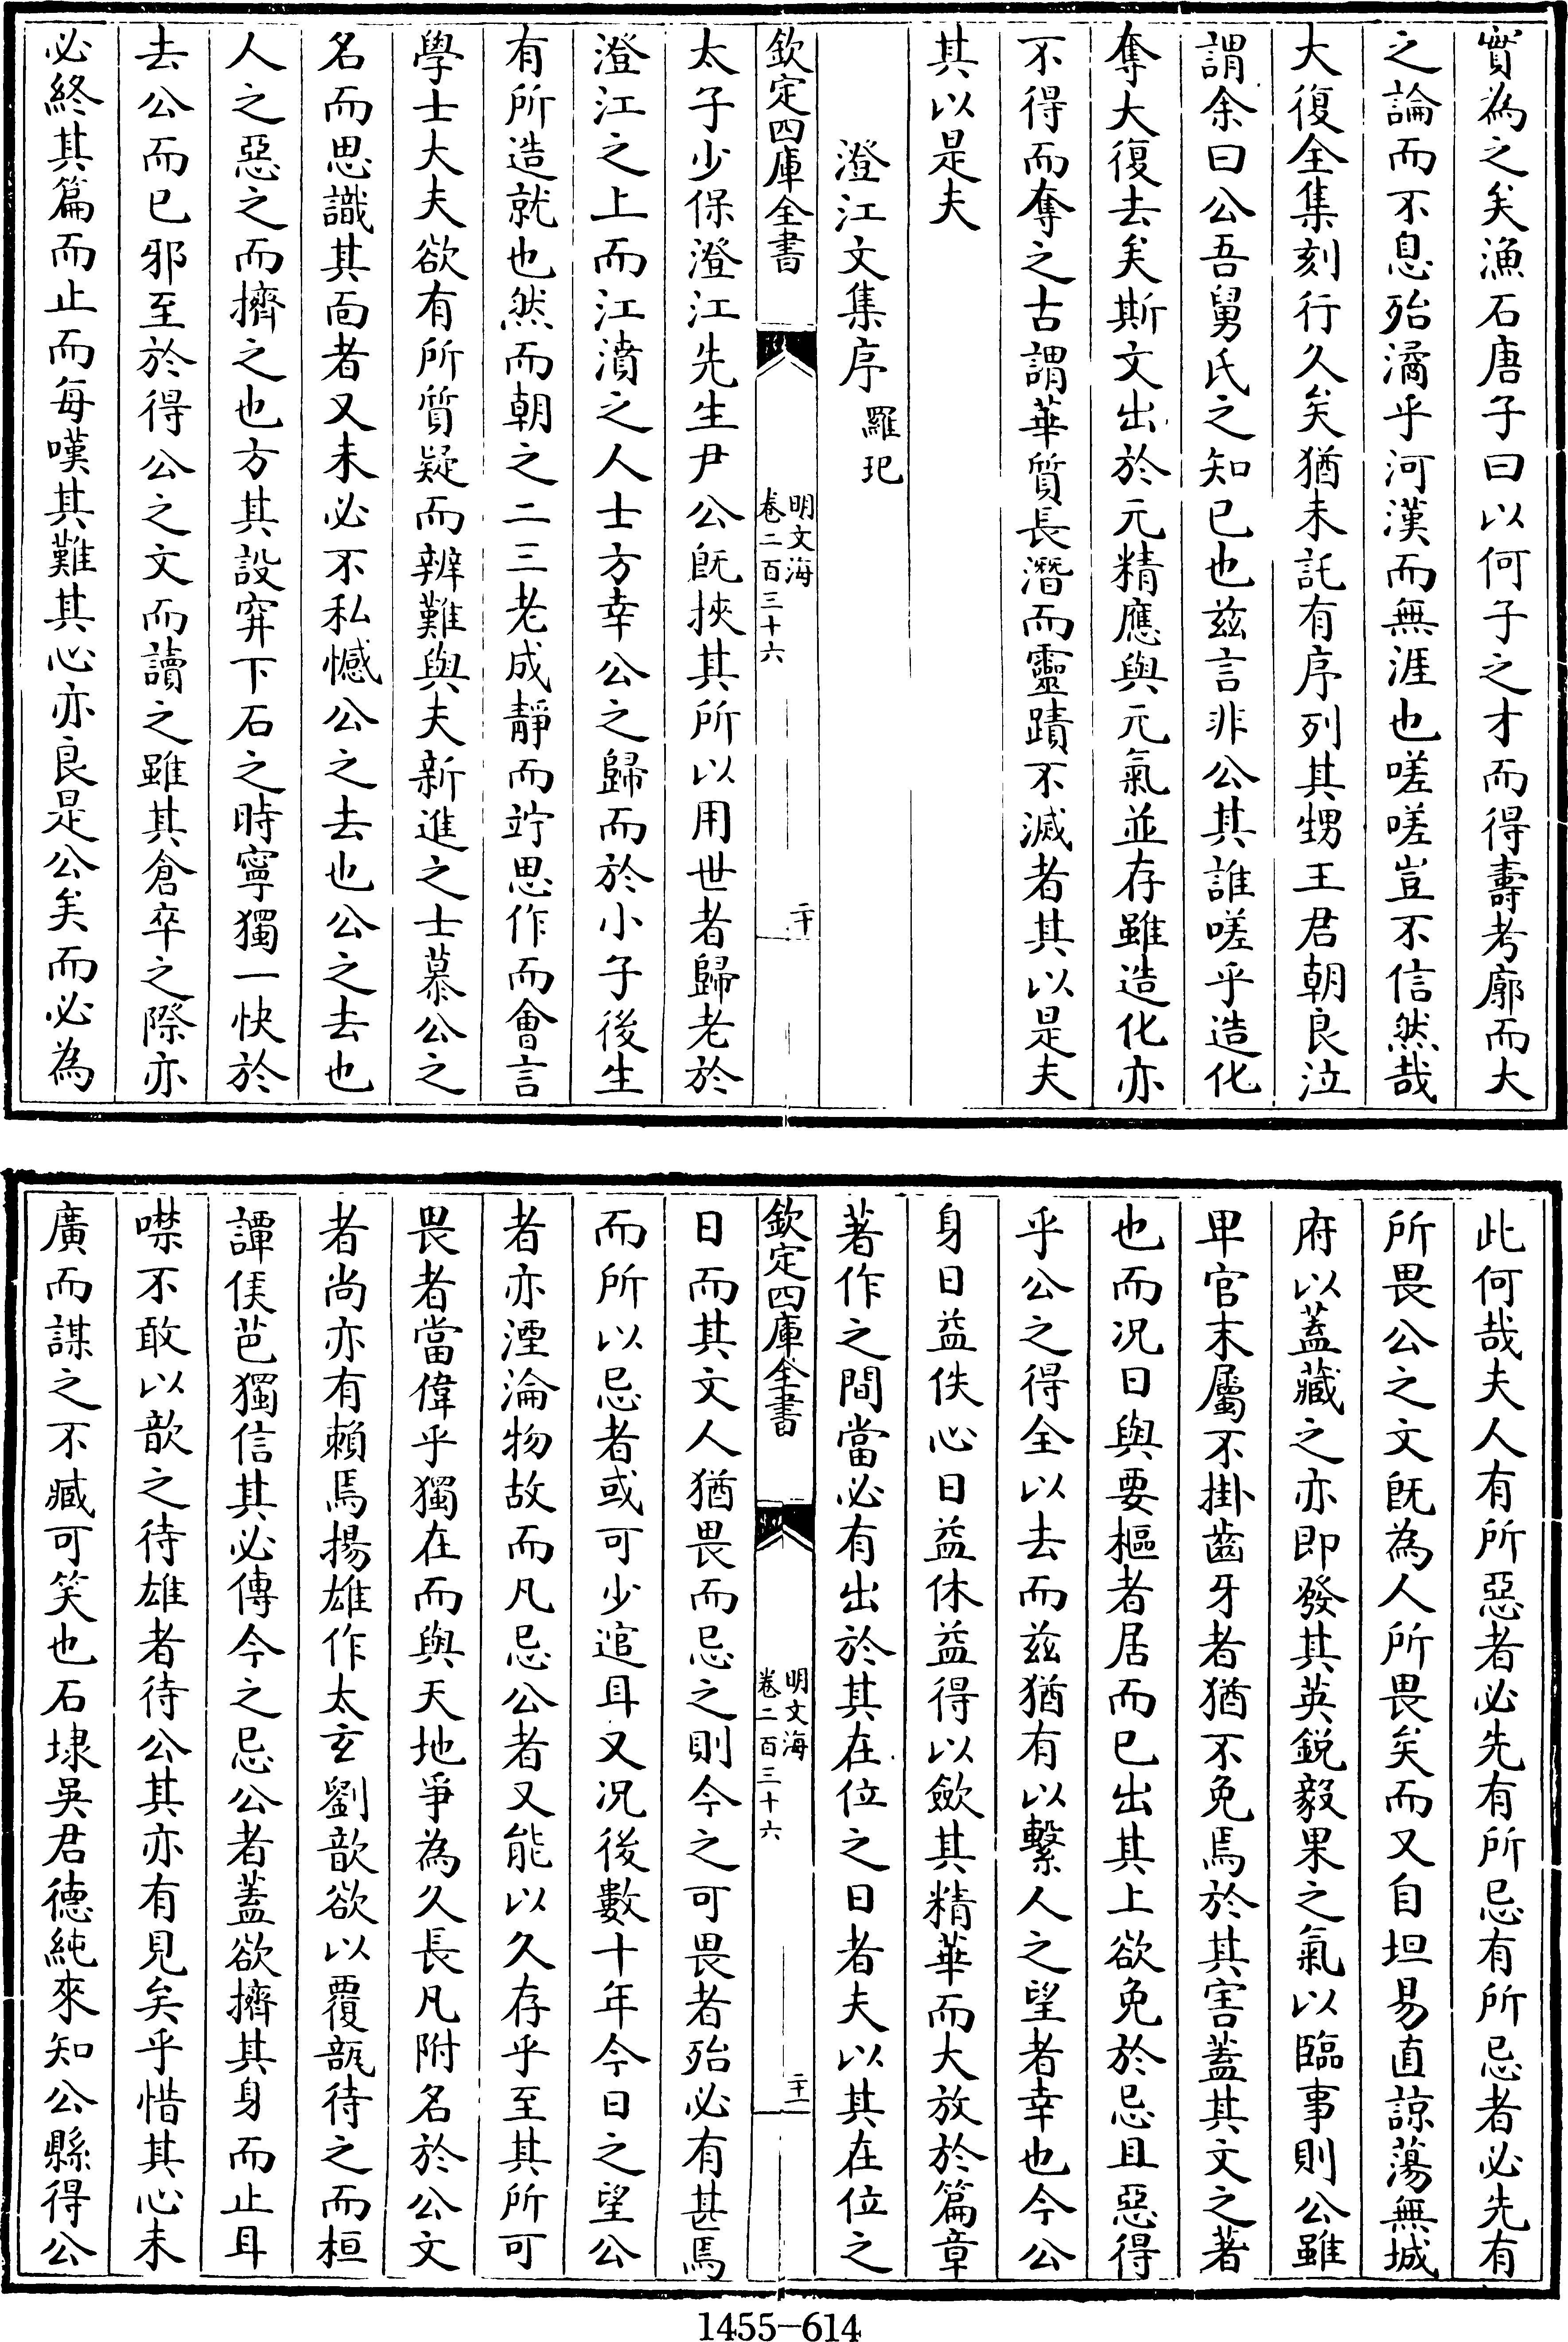 實為之矣漁石唐子曰以何子之才而得壽考廓而大
之論而不息殆潏乎河漢而無涯也嗟嗟豈不信然哉
大復全集刻行久矣猶未託有序列其甥王君朝良泣
謂余曰公吾舅氏之知已也兹言非公其誰嗟乎造化
奪大復去矣斯文出於元精應與元氣並存雖造化亦
不得而奪之古謂華質長潛而靈蹟不滅者其以是夫
其以是夫
澄江文集序 羅玘
欽定四庫全書 明文海 卷二百三十六 二十
太子少保澄江先生尹公既挾其所以用世者歸老於
澄江之上而江濆之人士方幸公之歸而於小子後生
有所造就也然而朝之二三老成靜而竚思作而會言
學士大夫欲有所質疑而辨難與夫新進之士慕公之
名而思識其面者又未必不私憾公之去也公之去也
人之惡之而擠之也方其設穽下石之時寧獨一快於
去公而已邪至於得公之文而讀之雖其倉卒之際亦
必終其篇而止而每嘆其難其心亦良是公矣而必為
此何哉夫人有所惡者必先有所忌有所忌者必先有
所畏公之文既為人所畏矣而又自坦易直諒蕩無城
府以蓋藏之亦即發其英銳毅果之氣以臨事則公雖
卑官末屬不掛齒牙者猶不免焉於其害蓋其文之著
也而况日與要樞者居而已出其上欲免於忌且惡得
乎公之得全以去而兹猶有以繫人之望者幸也今公
身日益佚心日益休益得以斂其精華而大放於篇章
著作之間當必有出於其在位之日者夫以其在位之
欽定四庫全書 明文海 卷二百三十六 二十一
日而其文人猶畏而忌之則今之可畏者殆必有甚焉
而所以忌者或可少逭耳又况後數十年今日之望公
者亦湮淪物故而凡忌公者又能以久存乎至其所可
畏者當偉乎獨在而與天地爭為久長凡附名於公文
者尚亦有賴焉揚雄作太玄劉歆欲以覆瓿待之而桓
譚侯芭獨信其必傳今之忌公者蓋欲擠其身而止耳
噤不敢以歆之待雄者待公其亦有見矣乎惜其心未
廣而謀之不臧可笑也石埭吳君德純來知公縣得公
1455-614